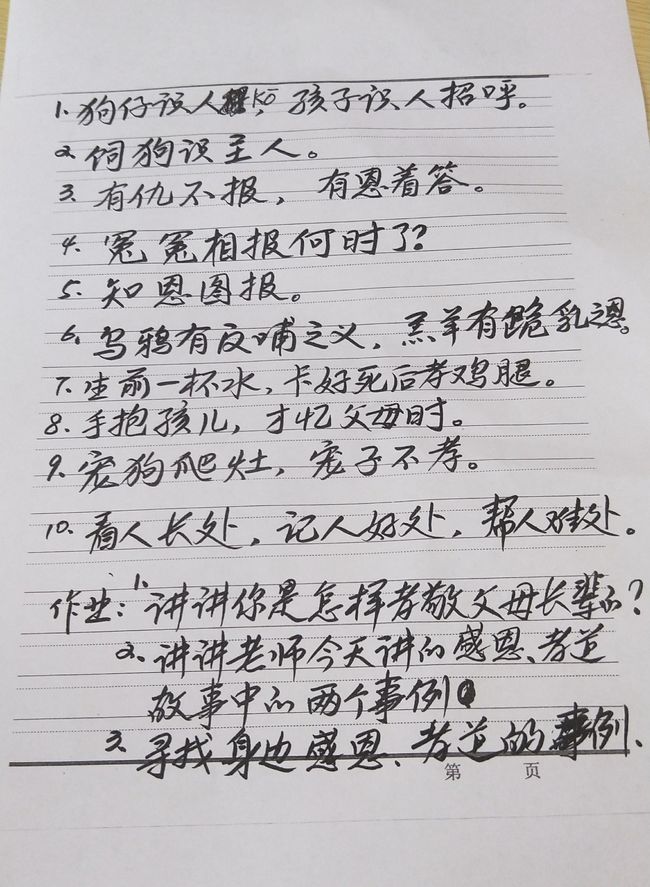 1. 狗仔识人kō，孩子识人招呼。
2. 饲狗识主人。
3. 有仇不报，有恩着答。
4. 冤冤相报何时了?
5. 知恩图报。
6. 乌鸦有反哺之义，羔羊有跪乳之恩。
7. 生前一杯水，卡好死后孝鸡腿。
8. 手抱孩儿，才忆父母时。
9. 宠狗爬灶，宠子不孝。
10. 看人长处，记人好处，帮人难处。
作业：1. 讲讲你是怎样孝敬父母长辈的?
2. 讲讲老师今天讲的感恩、孝道
故事中的两个事例。
3. 寻找身边感恩、孝道的事例.
第 页